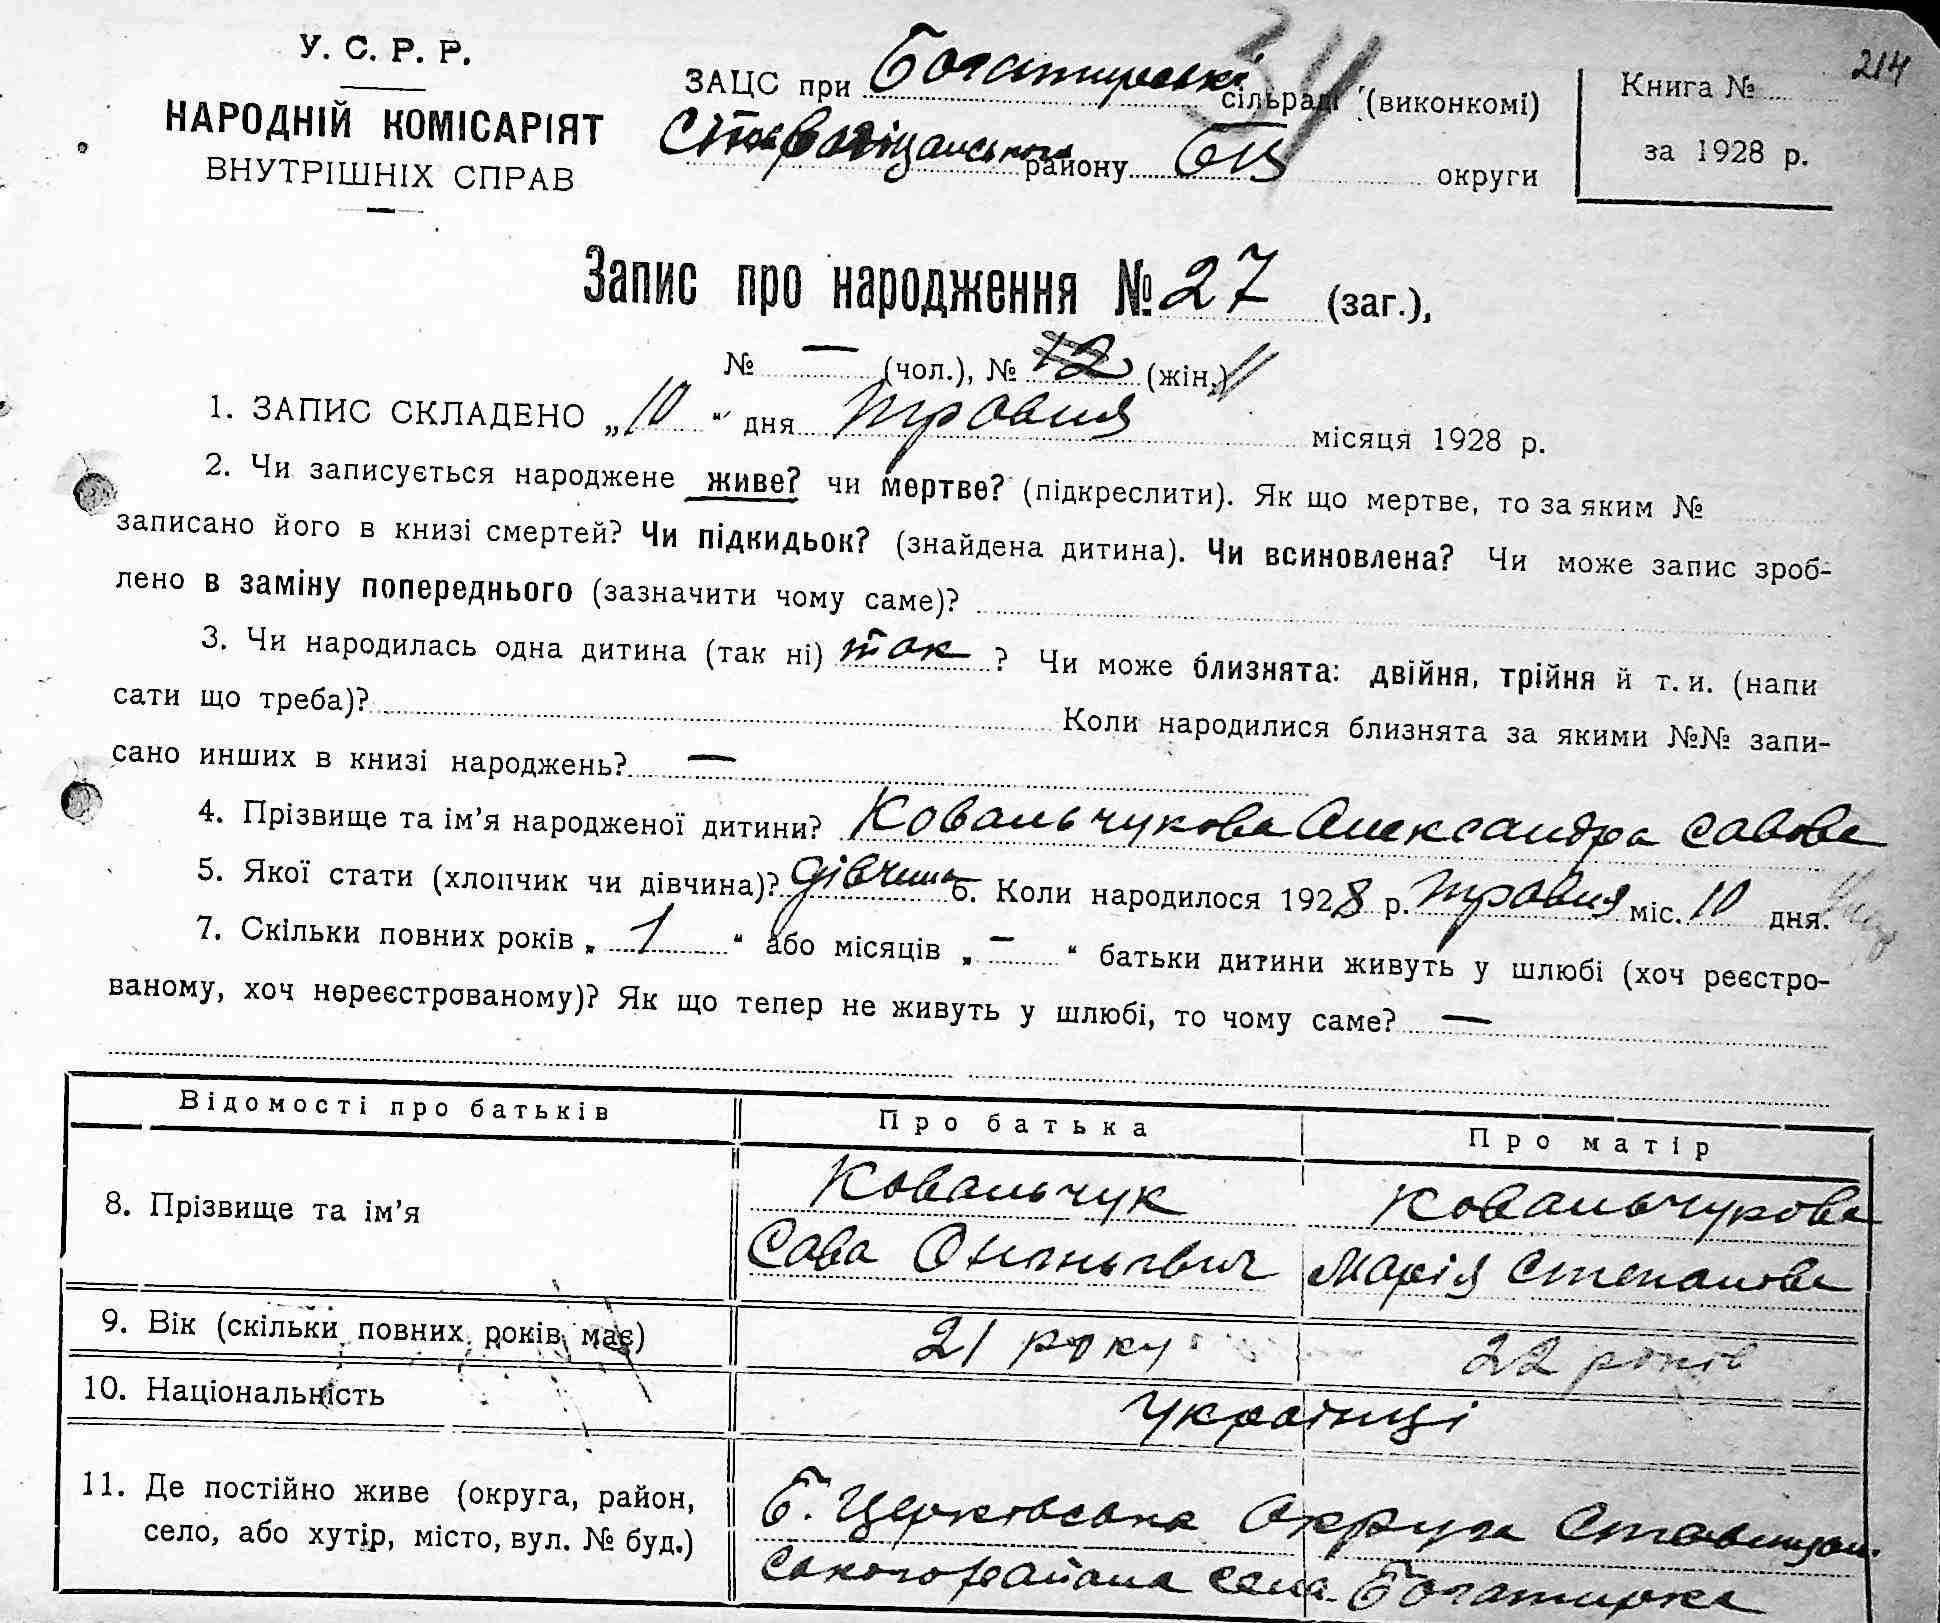 214
У. С. Р. Р.
НАРОДНІЙ КОМІСАРІЯТ
ВНУТРІШНІХ СПРАВ
ЗАЦС при Богатирські сільраді (виконкомі)
Ставищанського району БЦ округи
Книга №
за 1928 р.
Запис про народження № 27 (заг.),
№ — (чол.), № 12 (жін.) 11
1. ЗАПИС СКЛАДЕНО „10“ дня травня місяця 1928 р.
2. Чи записується народжене живе? чи мертве? (підкреслити). Як що мертве, то за яким №
записано його в книзі смертей? Чи підкидьок? (знайдена дитина). Чи всиновлена? Чи може запис зроб-
лено в заміну попереднього (зазначити чому саме)?
3. Чи народилась одна дитина (так ні) так ? Чи може близнята: двійня, трійня й т. и. (напи
сати що треба)? Коли народилися близнята за якими №№ запи-
сано инших в книзі народжень? —
4. Прізвище та ім’я народженої дитини? Ковальчукова Александра Савова
5. Якої стати (хлопчик чи дівчина)? дівчина 6. Коли народилося 1928 р. травня міс. 10 дня.
7. Скільки повних років „ 1 “ або місяців „ — “ батьки дитини живуть у шлюбі (хоч реєстро-
ваному, хоч нереєстрованому)? Як що тепер не живуть у шлюбі, то чому саме? —
Відомості про батьків Про батька Про матір
8. Прізвище та ім’я
Ковальчук Ковальчукова
Сава Ониньевич Марія Степанова
9. Вік (скільки повних років має) 21 року 22 років
10. Національність українці
11. Де постійно живе (округа, район,
село, або хутір, місто, вул. № буд.)
Б. Церківська Округа Ставищан.
ського района села Богатирка